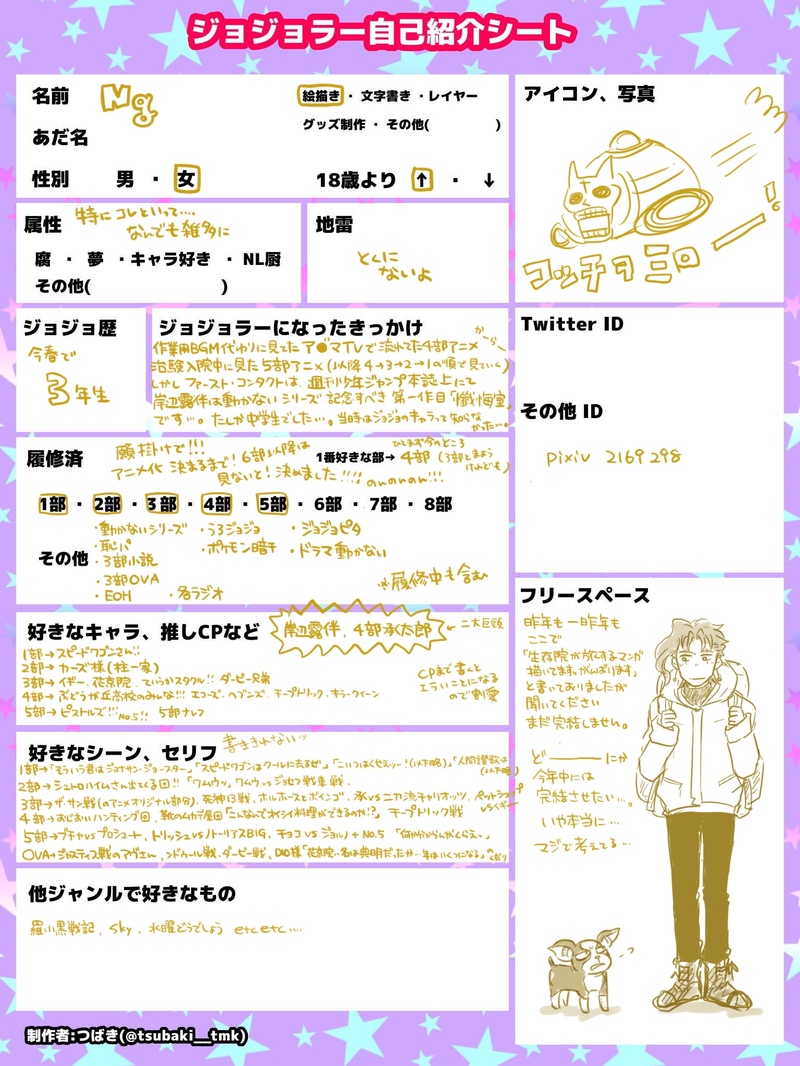 ジョジョラー自己紹介シート
名前 Ng
絵描き・文字書き・レイヤー
グッズ制作・その他( )
あだ名
性別 男・女
18歳より ↑・↓
アイコン、写真
コッチヲ ミロー!
属性
特にコレといって…
なんでも雑多に
腐・夢・キャラ好き・NL厨
その他( )
地雷
とくに
ないよ
ジョジョ歴
今春で
3年生
ジョジョラーになったきっかけ
作業用BGM代わりに見てたア●マTVで流れてた4部アニメから、
治験入院中に見た5部アニメ(以降4→3→2→1の順で見ていく)
しかしファースト・コンタクトは、週刊少年ジャンプ本誌上にて
岸辺露伴は動かないシリーズ 記念すべき 第一作目「懺悔室」
です…。たしか中学生でした…。当時はジョジョのキャラって知らなかった…。
Twitter ID
その他 ID
pixiv 2169298
履修済
願掛けで!!!
アニメ化 決まるまで!6部以降は
見ないと!決めました!!!!
1番好きな部→ 4部
ひとまず今のところ
(3部とまよう
けれども)
1部・2部・3部・4部・5部・6部・7部・8部
その他
・動かないシリーズ ・うろジョジョ ・ジョジョピタ
・恥パ ・ポケモン暗チ ・ドラマ動かない
・3部小説
・3部OVA
・EOH ・各ラジオ
※履修中も含む
好きなキャラ、推しCPなど
岸辺露伴、4部承太郎
←二大巨頭
1部→スピードワゴンさん!!
2部→カーズ様(柱一家)
3部→イギー、花京院、ていうかスタクル!! ダービー兄弟
4部→ぶどうが丘高校のみんな!!! エコーズ、ヘブンズ、チープトリック、キラークイーン
5部→ピストルズ!!! No.5!! 5部ナレフ
CPまで書くと
エラいことになる
ので割愛
好きなシーン、セリフ
書ききれないッ
1部→「そういう君はジョナサン・ジョースター」「スピードワゴンはクールに去るぜ」「こいつはくせえッー!(以下略)」「人間讃歌は(以下略)
2部→シュトロハイムさん出てくる回!!「ワムウッ」ワムウvsジョセフ戦車戦、
3部→ザ・サン戦(のアニメオリジナル部分)、死神13戦、ホルホースとボインゴ、承vs二刀流チャリオッツ、
4部→おじおいハンティング回、靴のムカデ屋回「こんなんでオカシイ料理ができるのか!?」チープトリック戦
5部→ブチャvsプロシュート、トリッシュvsノトーリアスBIG、チョコvsジョルノ+No.5
OVA→ジャスティス戦のアヴさん、ンドゥール戦、ダービー戦、DIO様「花京院…名は典明だったか…年はいくつになる」のくだり
他ジャンルで好きなもの
羅小黒戦記、sky、水曜どうでしょう etc etc….
フリースペース
昨年も一昨年も
ここで
「生存院が旅するマンガ
描いてますがんばります」
と書いておりましたが
聞いてください
まだ完結しません。
どーーーにか
今年中には
完結させたい…。
いや本当に…
マジで考えてる…
制作者:つばき(@tsubaki__tmk)